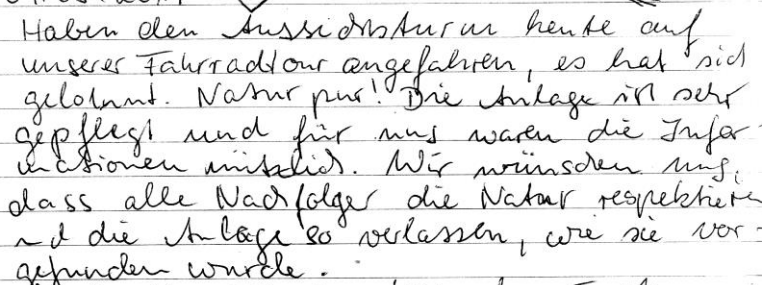 Haben den Aussichtsturm heute auf
unserer Fahrradtour angefahren, es hat sich
gelohnt. Natur pur! Die Anlage ist sehr
gepflegt und für uns waren die Infor-
mationen nützlich. Wir wünschen uns,
dass alle Nachfolger die Natur respektieren
und die Anlage so verlassen, wie sie vor-
gefunden wurde.